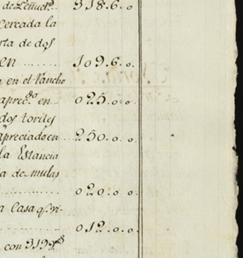 de 318.6.0
cercada la
rta de dos
en 109.6.0
a en el Rancho
aprec.o en 025.0.0
dos torites
apreciado en 250.0.0
la Estancia
a de mulas
020.0.0
a Casa q.e
012.0.0
con 319 p.s